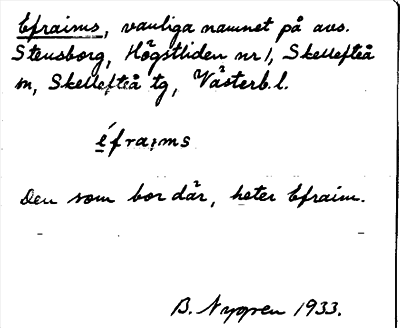 Efraims, vanliga namnet på avs.
Stensborg, Högstliden nr 1, Skellefteå
m, Skellefteå tg, Västerb. l.
éfraims
Den som bor där, heter Efraim.
B. Nygren 1933.